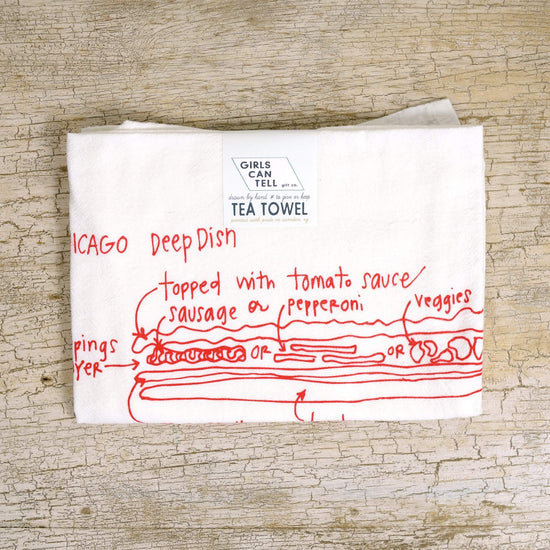 GIRLS
CAN
TELL gift co.
drawn by hand to give or keep
TEA TOWEL
printed with pride in camden, nj
ICAGO DeepDish
topped with tomato sauce
sausage or pepperoni
veggies
pings
YER
OR
OR